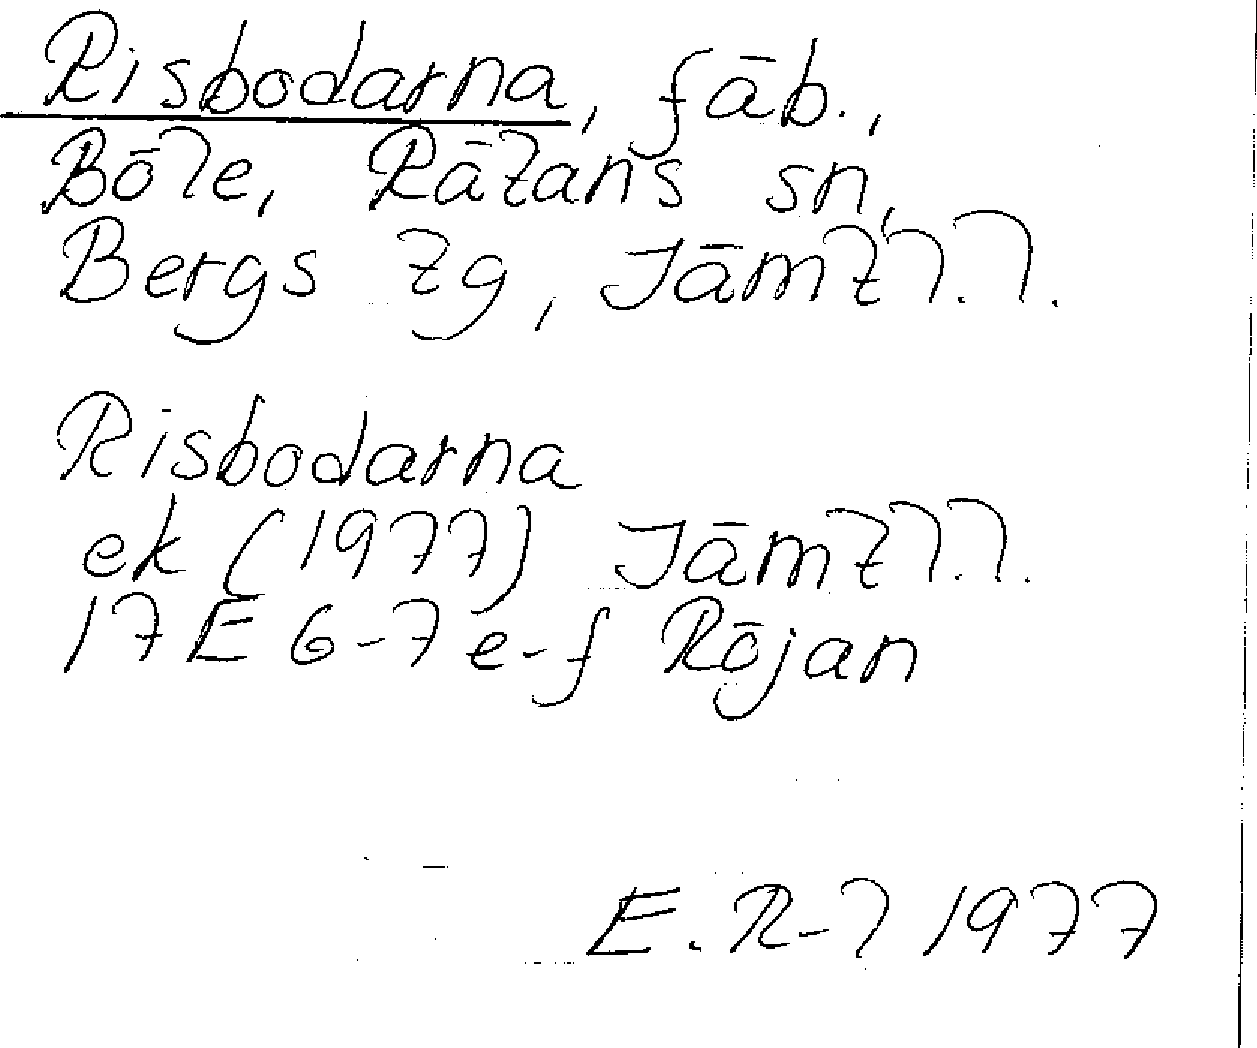 Risbodarna, fäb.,
Böle, Rätans sn,
Bergs tg, Jämtl.l.
Risbodarna
ek (1977) Jämtl.l.
17 E 6-7 e-f Röjan
E. R-l 1977